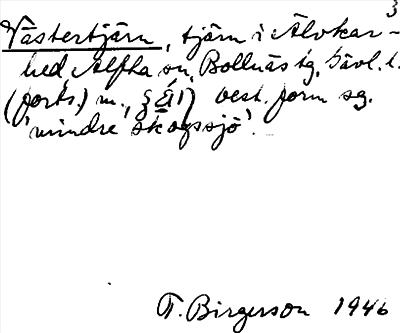 3
Västertjärn, tjärn i Älvkar-
hed, Alfta sn, Bollnäs tg, Gävl. l.
(forts.) m., § 21) best. form sg.
'mindre skogssjö'.
T. Birgerson 1946